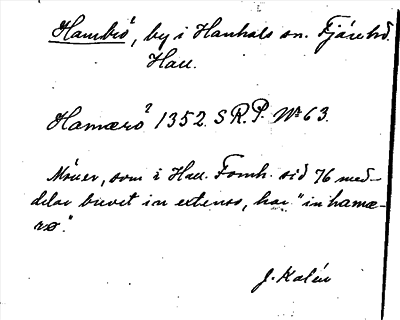 Hambrö?, by i Hanhals sn. Fjäre hd.
Hall.
Hamærø? 1352. S.R.P. No 63.
Möller, som i Hall. Fornh. sid 76 med-
delar brevet in extenso, har "in hamæ-
rø".
J. Kalén